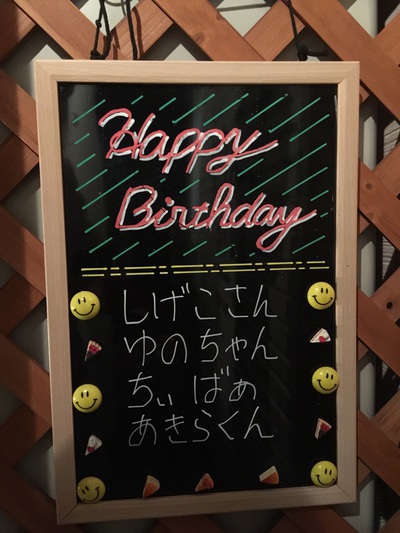 Happy
Birthday
しげこさん
ゆのちゃん
ちぃばぁ
あきらくん